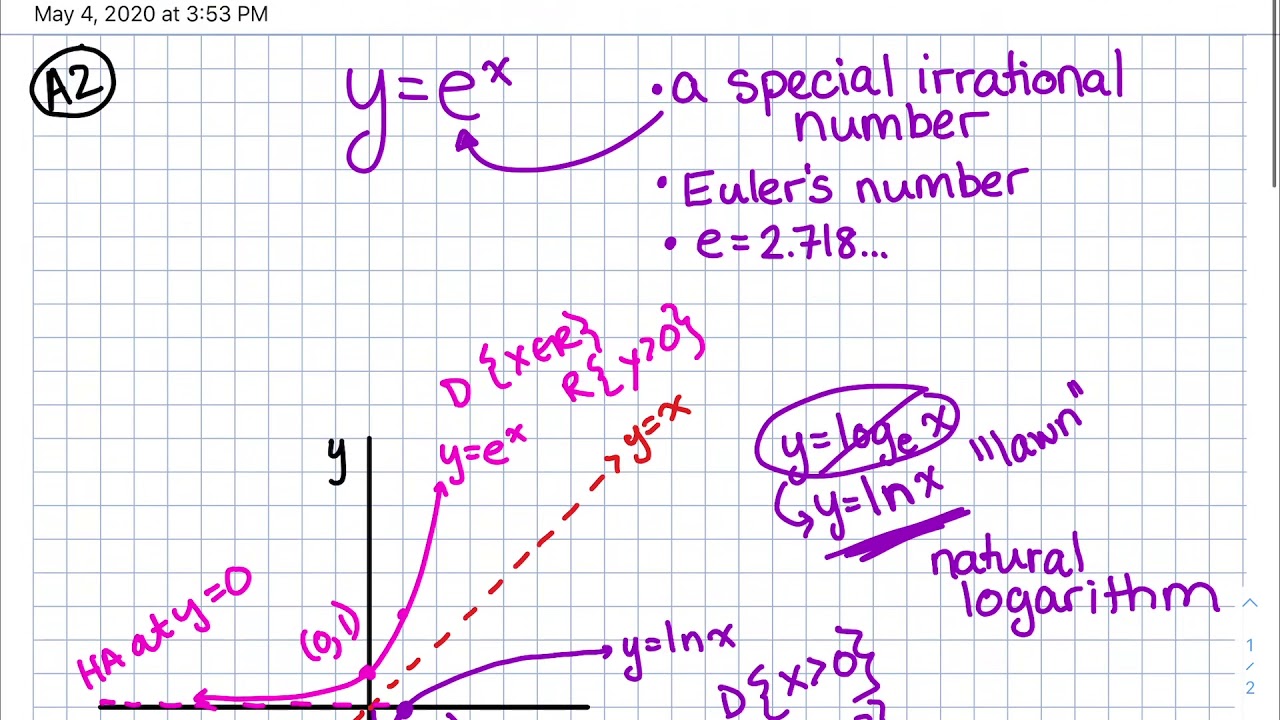 May 4, 2020 at 3:53 PM
A2
y=eˣ
• a special irrational
number
• Euler's number
• e=2.718...
D {x∈R}
R{y>0}
y=eˣ
y=x
y
y=logₑx
"lawn"
y=lnx
natural
logarithm
HA at y=0
(0,1)
y=lnx
D{x>0}
1
2